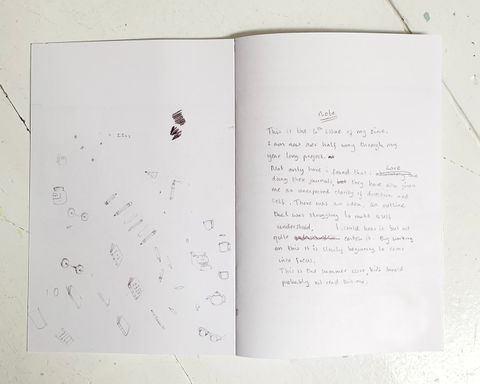 Note
This is the 6th issue of my zine.
I am now over half way through my
year long project.
Not only have i found that i love
doing these journals, but they have also given
me an unexpected clarity of direction and
self. There was an idea, an outline
that was struggling to make itself
understood. I could hear it but not
quite catch it. By working
on this it is slowly beginning to come
into focus.
This is the summer issue, kids should
probably not read this one.